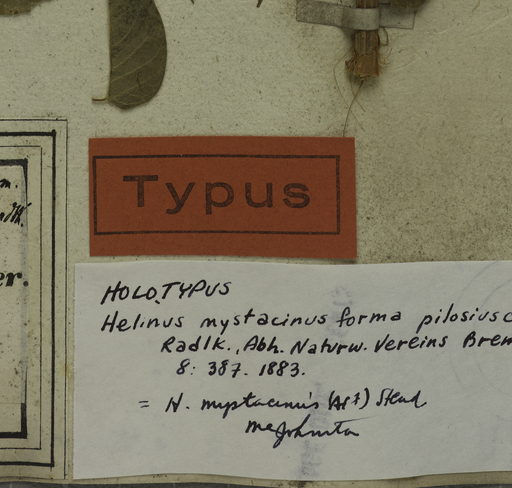 m.
er.
Typus
HOLOTYPUS
Helinus mystacinus forma pilosiusc
Radlk., Abh. Naturw. Vereins Brem
8: 387. 1883.
= H. mystacinus (Ait) Steud